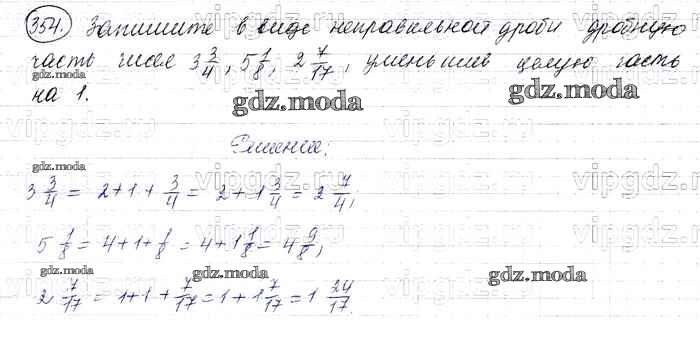 354. Запишите в виде неправильной дроби дробную
часть чисел 3 3/4, 5 1/8, 2 7/17, уменьшив целую часть
на 1.
gdz.moda gdz.moda
Решение:
gdz.moda
3 3/4 = 2+1+ 3/4 = 2+1 3/4 = 2 7/4;
5 1/8 = 4+1+ 1/8 = 4+1 1/8 = 4 9/8;
gdz.moda gdz.moda gdz.moda
2 7/17 = 1+1+ 7/17 = 1+1 7/17 = 1 24/17.
vipgdz.ru